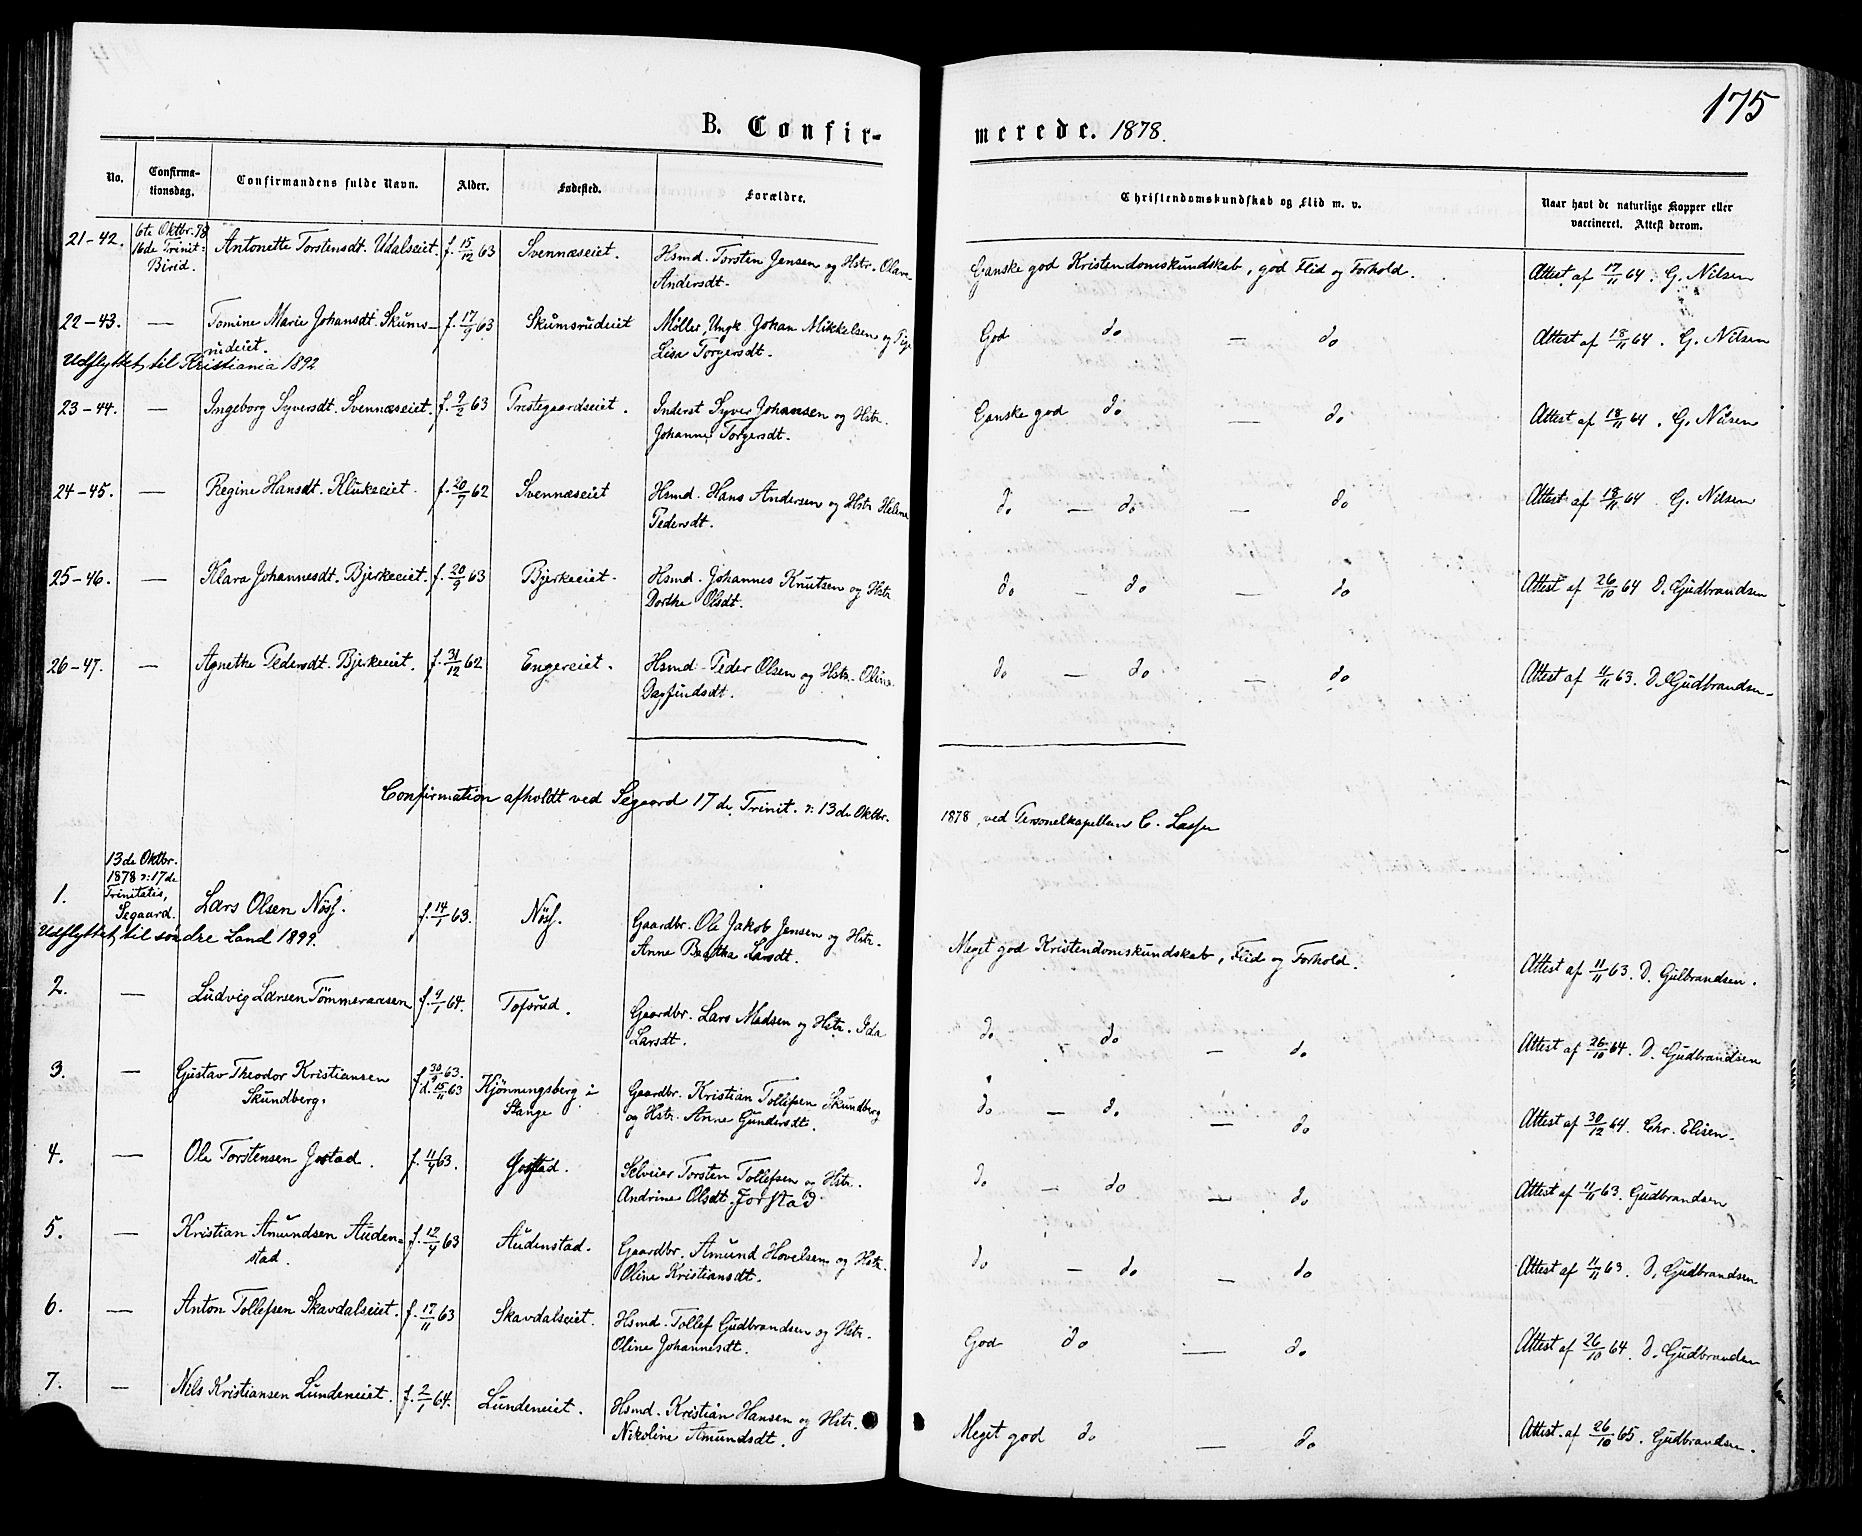 175
B. Confir-
merede. 1878.
No.
Confirma-
tionsdag.
Confirmandens fulde Navn.
Alder.
Fødested.
Forældre.
Christendomskundskab og Flid m. v.
Naar havt de naturlige Kopper eller
vaccineret. Attest derom.
21-42. 6te Oktbr. 78 Antonette Torstensdt. Udalseiet. f. 15/12 63 Svennæseiet. Hsmd. Torsten Jensen og Hstr. Olava Ganske god Kristendomskundskab, god Flid og Forhold. Attest af 17/11 64. G. Nilsen
16de Trinit: Andersdt.
Birid.
22-43. — Tomine Marie Johansdt. Skums- f. 17/9 63 Skumsrudeiet Møller, Ungk. Johan Mikkelsen og Pige God do — do Attest af 18/11 64. G. Nilsen
rudeiet. Lisa Torgersdt.
Udflyttet til Kristiania 1892
23-44. — Ingeborg Syversdt. Svennæseiet. f. 9/2 63 Prestegaardseiet. Inderst Syver Johansen og Hstr. Ganske god do — do Attest af 18/11 64. G. Nilsen
Johanne Torgersdt.
24-45. — Regine Hansdt. Klukeeiet. f. 20/7 62 Svennæseiet Hsmd. Hans Andersen og Hstr Helene do — do — do Attest af 18/11 64 G. Nilsen
Pedersdt.
25-46. — Klara Johannesdt. Bjerkeeiet. f. 20/9 63 Bjerkeeiet. Hsmd. Johannes Knutsen og Hstr do — do — do Attest af 26/10 64 D. Gudbrandsen
Dorthe Olsdt.
26-47. — Agnethe Pedersdt. Bjerkeeiet. f. 31/12 62 Engereiet. Hsmd. Peder Olsen og Hstr. Oline do — do — do Attest af 11/11 63. D. Gudbrandsen
Dagfindsdt.
Confirmation afholdt ved Segaard 17de Trinit. ɔ: 13de Oktbr. 1878, ved Personelkapellan C. Lasse
1. 13de Oktbr. Lars Olsen Nøss. f. 14/1 63. Nøss. Gaardbr. Ole Jakob Jensen og Hstr. Meget god Kristendomskundskab, Flid og Forhold. Attest af 11/11 63. D. Gulbrandsen.
1878 ɔ: 17de
Trinitatis,
Segaard. Anne Bertha Larsdt.
Udflyttet til søndre Land 1899.
2. — Ludvig Larsen Tømmeraasen f. 9/1 64. Tofsrud. Gaardbr. Lars Madsen og Hstr. Ida do do — do Attest af 26/10 64. D. Gudbrandsen
Larsdt.
3. — Gustav Theodor Kristiansen f. 30/9 63. Kjønningsberg i Gaardbr. Kristian Tollefsen Skundberg do — do — do Attest af 30/12 64. Chr. Elisen.
Skundberg. d. 15/11 63 Stange og Hstr. Anne Gundersdt.
4. — Ole Torstensen Jostad. f. 11/4 63. Jostad. Selveier Torsten Tollefsen og Hstr. do — do — do Attest af 11/11 63. Gudbrandsen
Andrine Olsdt. Jorstad
5. — Kristian Amundsen Auden= f. 12/4 63 Audenstad. Gaardbr. Amund Hovelsen og Hstr. do — do — do Attest af 11/11 63. D. Gudbrandsen
stad. Oline Kristiansdt.
6. — Anton Tollefsen Skavdalseiet. f. 17/11 63 Skavdalseiet. Hsmd. Tollef Gudbrandsen og Hstr. God do — do Attest af 26/10 64 D. Gudbrandsen
Oline Johannesdt.
7. — Nils Kristiansen Lundeneiet. f. 2/1 64. Lundeneiet. Hsmd. Kristian Hansen og Hstr. Meget god do — do Attest af 26/10 65. Gudbrandsen.
Nikoline Amundsdt.